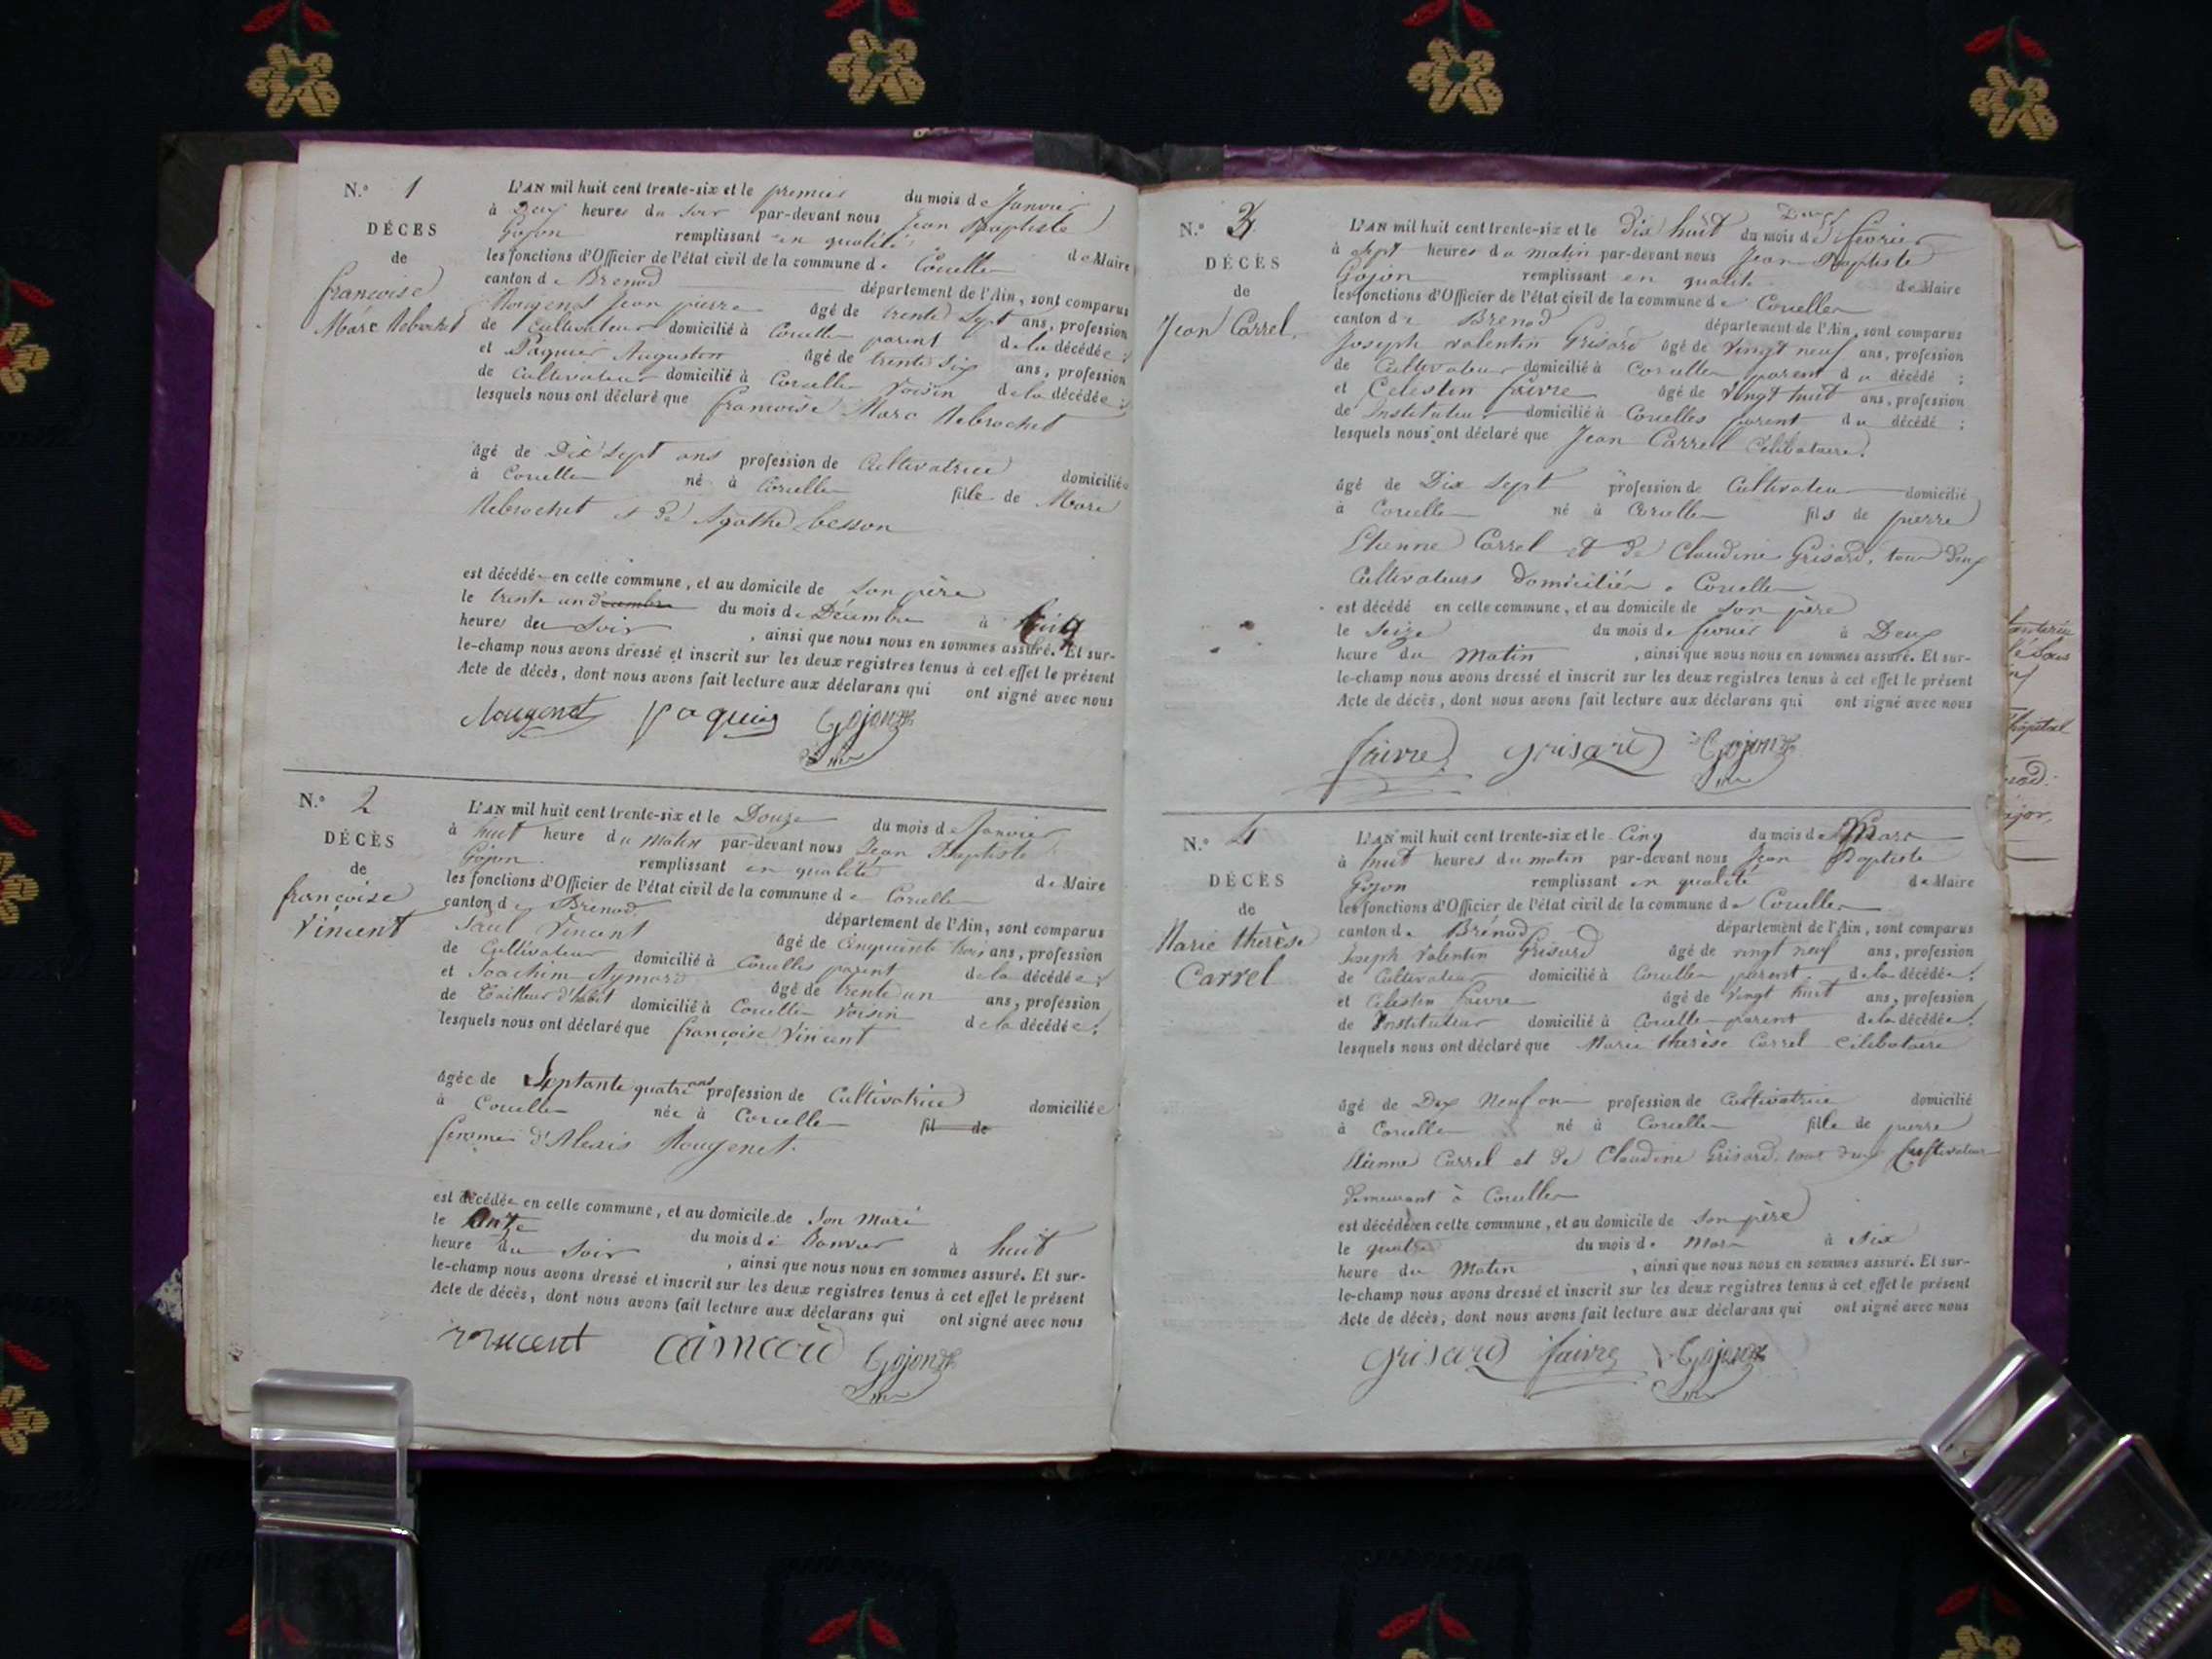 N.° 1
DÉCÈS
de
françoise
Marc Nebrochet
L'AN mil huit cent trente-six et le premier du mois de Janvier
à Deux heures du soir par-devant nous Jean Baptiste
Gojon remplissant en qualité de Maire
les fonctions d'Officier de l'état civil de la commune de Corcelle
canton de Brenod département de l'Ain, sont comparus
Rougenet Jean pierre âgé de trente sept ans, profession
de Cultivateur domicilié à Corcelle parent de la décédée ;
et Paquier Augustin âgé de trente six ans, profession
de Cultivateur domicilié à Corcelle Voisin de la décédée ;
lesquels nous ont déclaré que françoise Marc Nebrochet
âgé de Dix Sept ans profession de Cultivatrice domiciliée
à Corcelle né à Corcelle fille de Marc
Nebrochet et de Agathe besson
est décédée en cette commune, et au domicile de Son père
le trente un du mois de Décembre à huit
heures du Soir , ainsi que nous nous en sommes assuré. Et sur-
le-champ nous avons dressé et inscrit sur les deux registres tenus à cet effet le présent
Acte de décès, dont nous avons fait lecture aux déclarans qui ont signé avec nous
Rougenet paquier Gojon
N.° 2
DÉCÈS
de
françoise
Vincent
L'AN mil huit cent trente-six et le Douze du mois de Janvier
à huit heure du matin par-devant nous Jean Baptiste
Gojon remplissant en qualité de Maire
les fonctions d'Officier de l'état civil de la commune de Corcelle
canton de Brenod département de l'Ain, sont comparus
Paul Vincent âgé de Cinquante trois ans, profession
de Cultivateur domicilié à Corcelles parent de la décédée ;
et Joachim Aymard âgé de trente un ans, profession
de Tailleur d'habit domicilié à Corcelle Voisin de la décédée ;
lesquels nous ont déclaré que françoise Vincent
âgée de Septante quatre ans profession de Cultivatrice domiciliée
à Corcelle née à Corcelle fil de
femme d'Alexis Rougenet.
est décédée en cette commune, et au domicile de Son Mari
le onze du mois de Janvier à huit
heure du Soir , ainsi que nous nous en sommes assuré. Et sur-
le-champ nous avons dressé et inscrit sur les deux registres tenus à cet effet le présent
Acte de décès, dont nous avons fait lecture aux déclarans qui ont signé avec nous
vincent aimard Gojon
N.° 3
DÉCÈS
de
Jean Carrel
L'AN mil huit cent trente-six et le Dix huit du mois de février
à Sept heures du matin par-devant nous Jean Baptiste
Gojon remplissant en qualité de Maire
les fonctions d'Officier de l'état civil de la commune de Corcelle
canton de Brenod département de l'Ain, sont comparus
Joseph valentin Grisard âgé de Vingt neuf ans, profession
de Cultivateur domicilié à Corcelle parent du décédé ;
et Celestin faivre âgé de Vingt huit ans, profession
de Instituteur domicilié à Corcelles parent du décédé ;
lesquels nous ont déclaré que Jean Carrel Célibataire.
âgé de Dix Sept profession de Cultivateur domicilié
à Corcelle né à Corcelle fils de pierre
Etienne Carrel et de Claudine Grisard, tous deux
Cultivateurs Domiciliés a Corcelle
est décédé en cette commune, et au domicile de Son père
le Seize du mois de fevrier à Deux
heure du Matin , ainsi que nous nous en sommes assuré. Et sur-
le-champ nous avons dressé et inscrit sur les deux registres tenus à cet effet le présent
Acte de décès, dont nous avons fait lecture aux déclarans qui ont signé avec nous
faivre grisard Gojon
N.° 4
DÉCÈS
de
Marie therèse
Carrel
L'AN mil huit cent trente-six et le Cinq du mois de Mars
à huit heures du matin par-devant nous Jean Baptiste
Gojon remplissant en qualité de Maire
les fonctions d'Officier de l'état civil de la commune de Corcelle
canton de Brénod département de l'Ain, sont comparus
Joseph Valentin Grisard âgé de vingt neuf ans, profession
de Cultivateur domicilié à Corcelle parent de la décédée ;
et Célestin faivre âgé de Vingt huit ans, profession
de Instituteur domicilié à Corcelle parent de la décédée ;
lesquels nous ont déclaré que Marie therèse Carrel Célibataire
âgé de Dix Neuf ans profession de Cultivatrice domicilié
à Corcelle né à Corcelle fille de pierre
Etienne Carrel et de Claudine Grisard tous deux Cultivateurs
demeurant à Corcelle
est décédée en cette commune, et au domicile de Son père
le quatre du mois de Mars à Six
heure du Matin , ainsi que nous nous en sommes assuré. Et sur-
le-champ nous avons dressé et inscrit sur les deux registres tenus à cet effet le présent
Acte de décès, dont nous avons fait lecture aux déclarans qui ont signé avec nous
grisard faivre Gojon